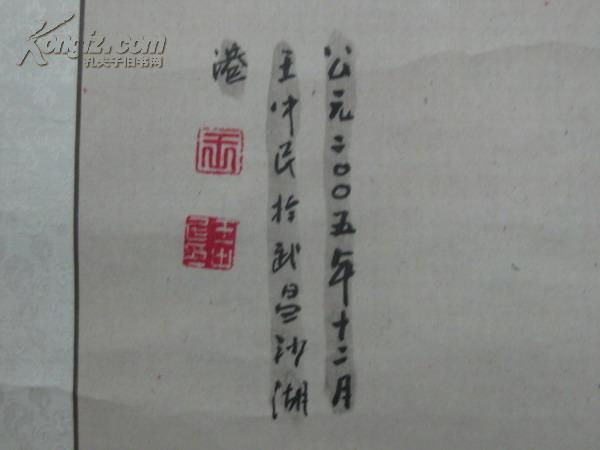 公元二〇〇五年十二月
王中民於武昌沙湖
港
Kongfz.com
孔夫子旧书网